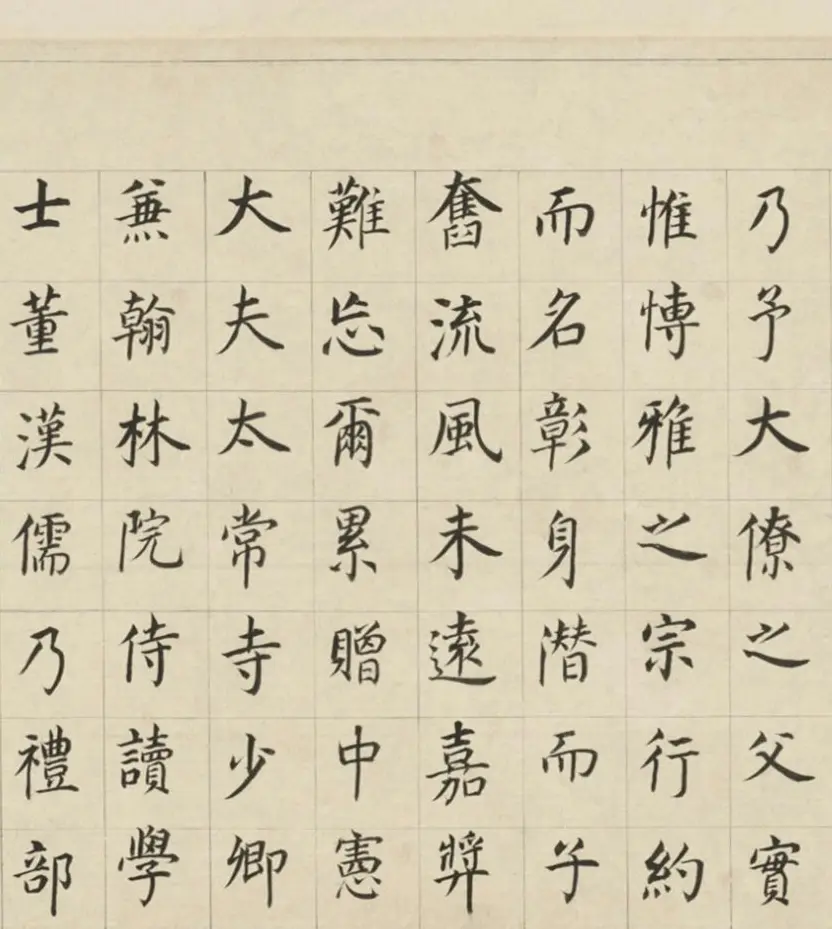 乃予大僚之父實
惟博雅之宗行約
而名彰身潛而子
奮流風未遠嘉獎
難忘爾累贈中憲
大夫太常寺少卿
兼翰林院侍讀學
士董漢儒乃禮部